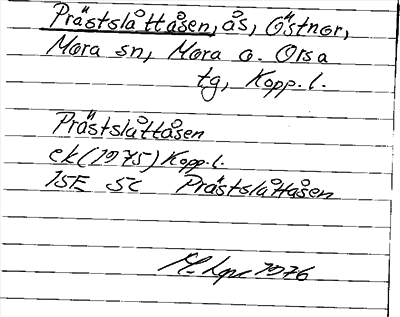 Prästslåttåsen, ås, Östnor,
Mora sn, Mora o. Orsa
tg, Kopp. l.
Prästslåttåsen
ek (1975) Kopp. l.
15E 5c Prästslåttåsen
1976